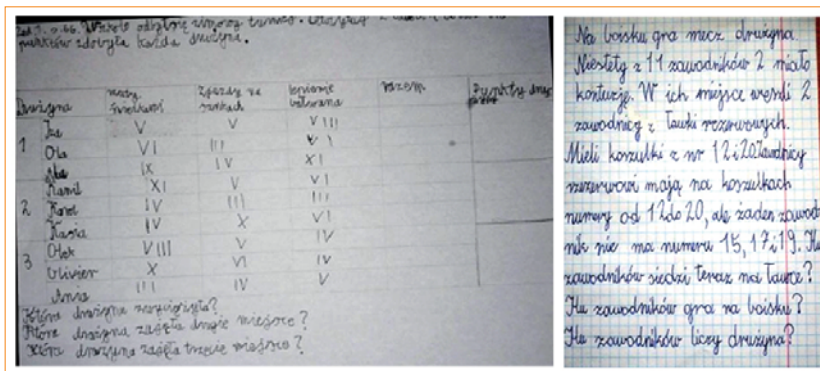 Zad. 1. s. 66. W szkole odbył się zimowy turniej. Odczytaj z
punktów zdobyła każda drużyna.
Drużyna rzuty śnieżkami Zjazdy na sankach lepienie bałwana razem Punkty drużyny
1 Iza V V VIII
Ola VI III VI
Ala IX IV XI
Kamil XI V VI
2 Karol IV III III
Kasia IV X VI
Olek VIII V IV
3 Oliwier X VI IV
Ania III IV V
Która drużyna zwyciężyła?
Która drużyna zajęła drugie miejsce?
Która drużyna zajęła trzecie miejsce?
Na boisku gra mecz drużyna.
Niestety z 11 zawodników 2 miało
kontuzję. W ich miejsce weszli 2
zawodnicy z ławki rezerwowych.
Mieli koszulki z nr 12 i 20. Zawodnicy
rezerwowi mają na koszulkach
numery od 12 do 20, ale żaden zawod
nik nie ma numeru 15, 17 i 19. Ilu
zawodników siedzi teraz na ławce?
Ilu zawodników gra na boisku?
Ilu zawodników liczy drużyna?